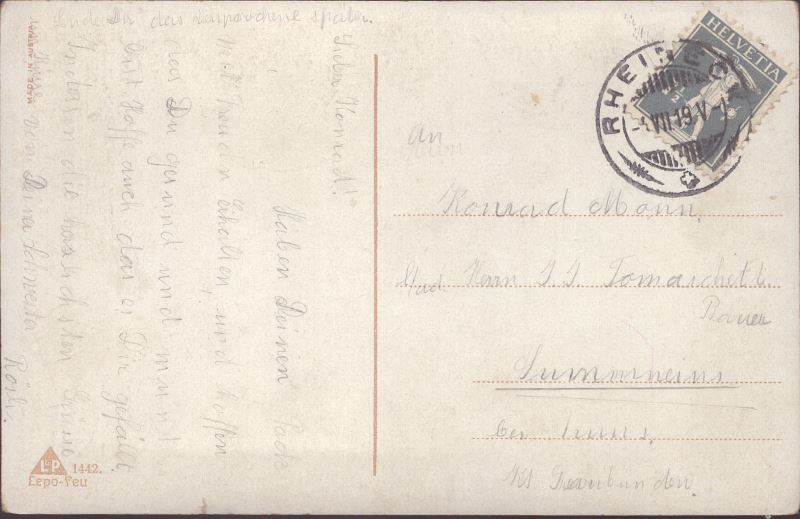 Sende Dir das Versprochene später.
Lieber Konrad!
Haben Deinen Pack
mit Freuden erhalten, und hoffen
das Du gesund und munter
bist Hoffe auch das es Dir gefällt
Indessen die herzlichsten Grüsse
von Deiner Schwester Rösli.
MADE IN AUSTRIA
LP 1442.
Lepo-Feu
HELVETIA
RHEINECK
VII.19
An
Konrad Mann
b/ad. Herrn J. J. Tomaschett
Bauer
Summerneins
bei Truns,
Kt. Graubünden